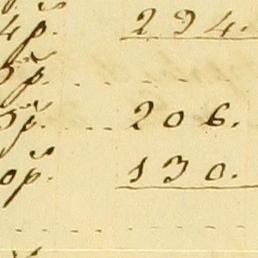 4p. 294.
p. . . . .
5p. . . . 206.
0p. 130.
. . . . . . . . .